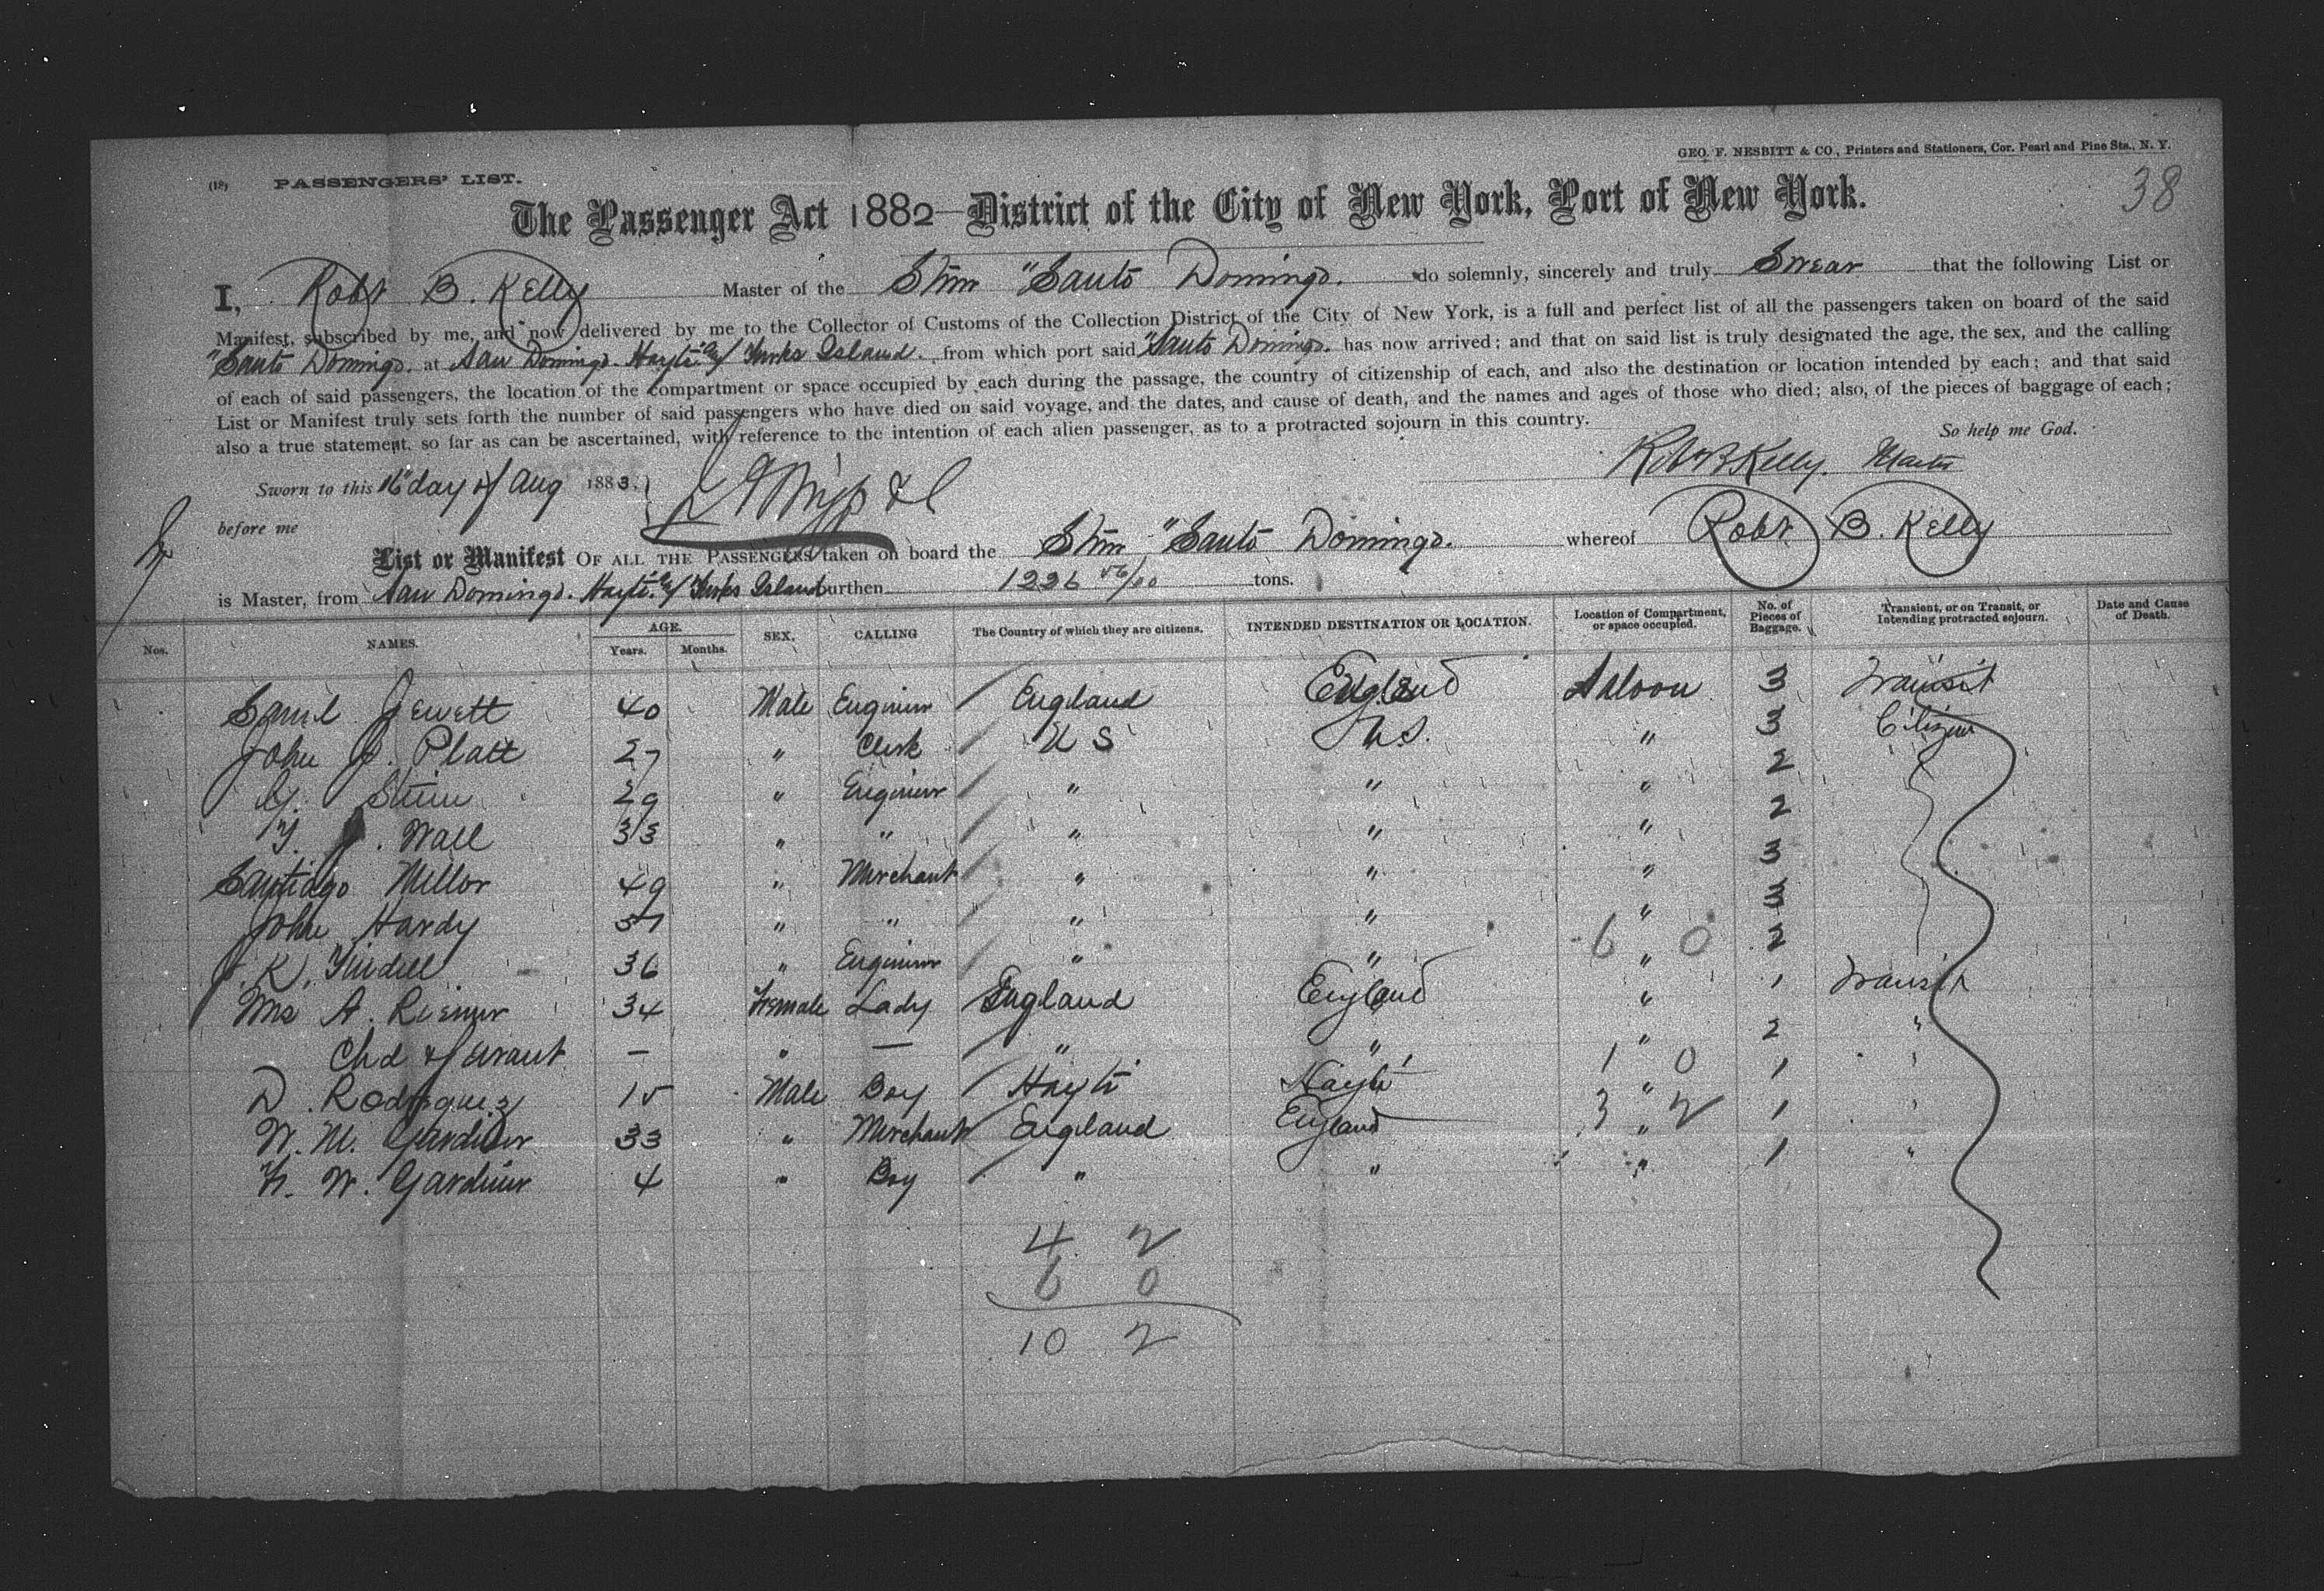 GEO. F. NESBITT & CO., Printers and Stationers, Cor. Pearl and Pine Sts., N. Y.
(18) PASSENGERS' LIST.
38
The Passenger Act 1882—District of the City of New York, Port of New York.
I, Robt B. Kelly Master of the Stmr "Santo Domingo. do solemnly, sincerely and truly Swear that the following List or
Manifest, subscribed by me, and now delivered by me to the Collector of Customs of the Collection District of the City of New York, is a full and perfect list of all the passengers taken on board of the said
"Santo Domingo. at San Domingo. Hayti. & Turks Island. from which port said "Santo Domingo. has now arrived; and that on said list is truly designated the age, the sex, and the calling
of each of said passengers, the location of the compartment or space occupied by each during the passage, the country of citizenship of each, and also the destination or location intended by each; and that said
List or Manifest truly sets forth the number of said passengers who have died on said voyage, and the dates, and cause of death, and the names and ages of those who died; also, of the pieces of baggage of each;
also a true statement, so far as can be ascertained, with reference to the intention of each alien passenger, as to a protracted sojourn in this country.
So help me God.
Robt B Kelly. Master
Sworn to this 16" day of Aug 1883.
before me
List or Manifest OF ALL THE PASSENGERS taken on board the Stmr "Santo Domingo. whereof Robt B. Kelly
is Master, from San Domingo. Hayti. & Turks Island burthen 1226 56/00 tons.
Nos. NAMES. AGE. Years. Months. SEX. CALLING The Country of which they are citizens. INTENDED DESTINATION OR LOCATION. Location of Compartment, or space occupied. No. of Pieces of Baggage. Transient, or on Transit, or Intending protracted sojourn. Date and Cause of Death.
Saml Jewett 40 Male Engineer England England Saloon 3 Transit
John J. Platt 27 " Clerk U S U.S. " 3 Citizen
G. Stein 29 " Engineer " " " 2
Wall 33 " " " " " 2
Santiago Mellor 49 " Merchant " " " 3
John Hardy 37 " " " " " 3
J. K. Tindell 36 " Engineer " " " 2
6 0
Mrs A. Riemer 34 Female Lady England England " 1 Transit
Chd & Servant — " — " " " 2 "
1 0
D. Rodriguez 15 Male Boy Hayti Hayti " 1 "
3 2
W. M. Gardiner 33 " Merchant England England " 1 "
W. Gardiner 4 " Boy " " " 1 "
4 2
6 0
10 2